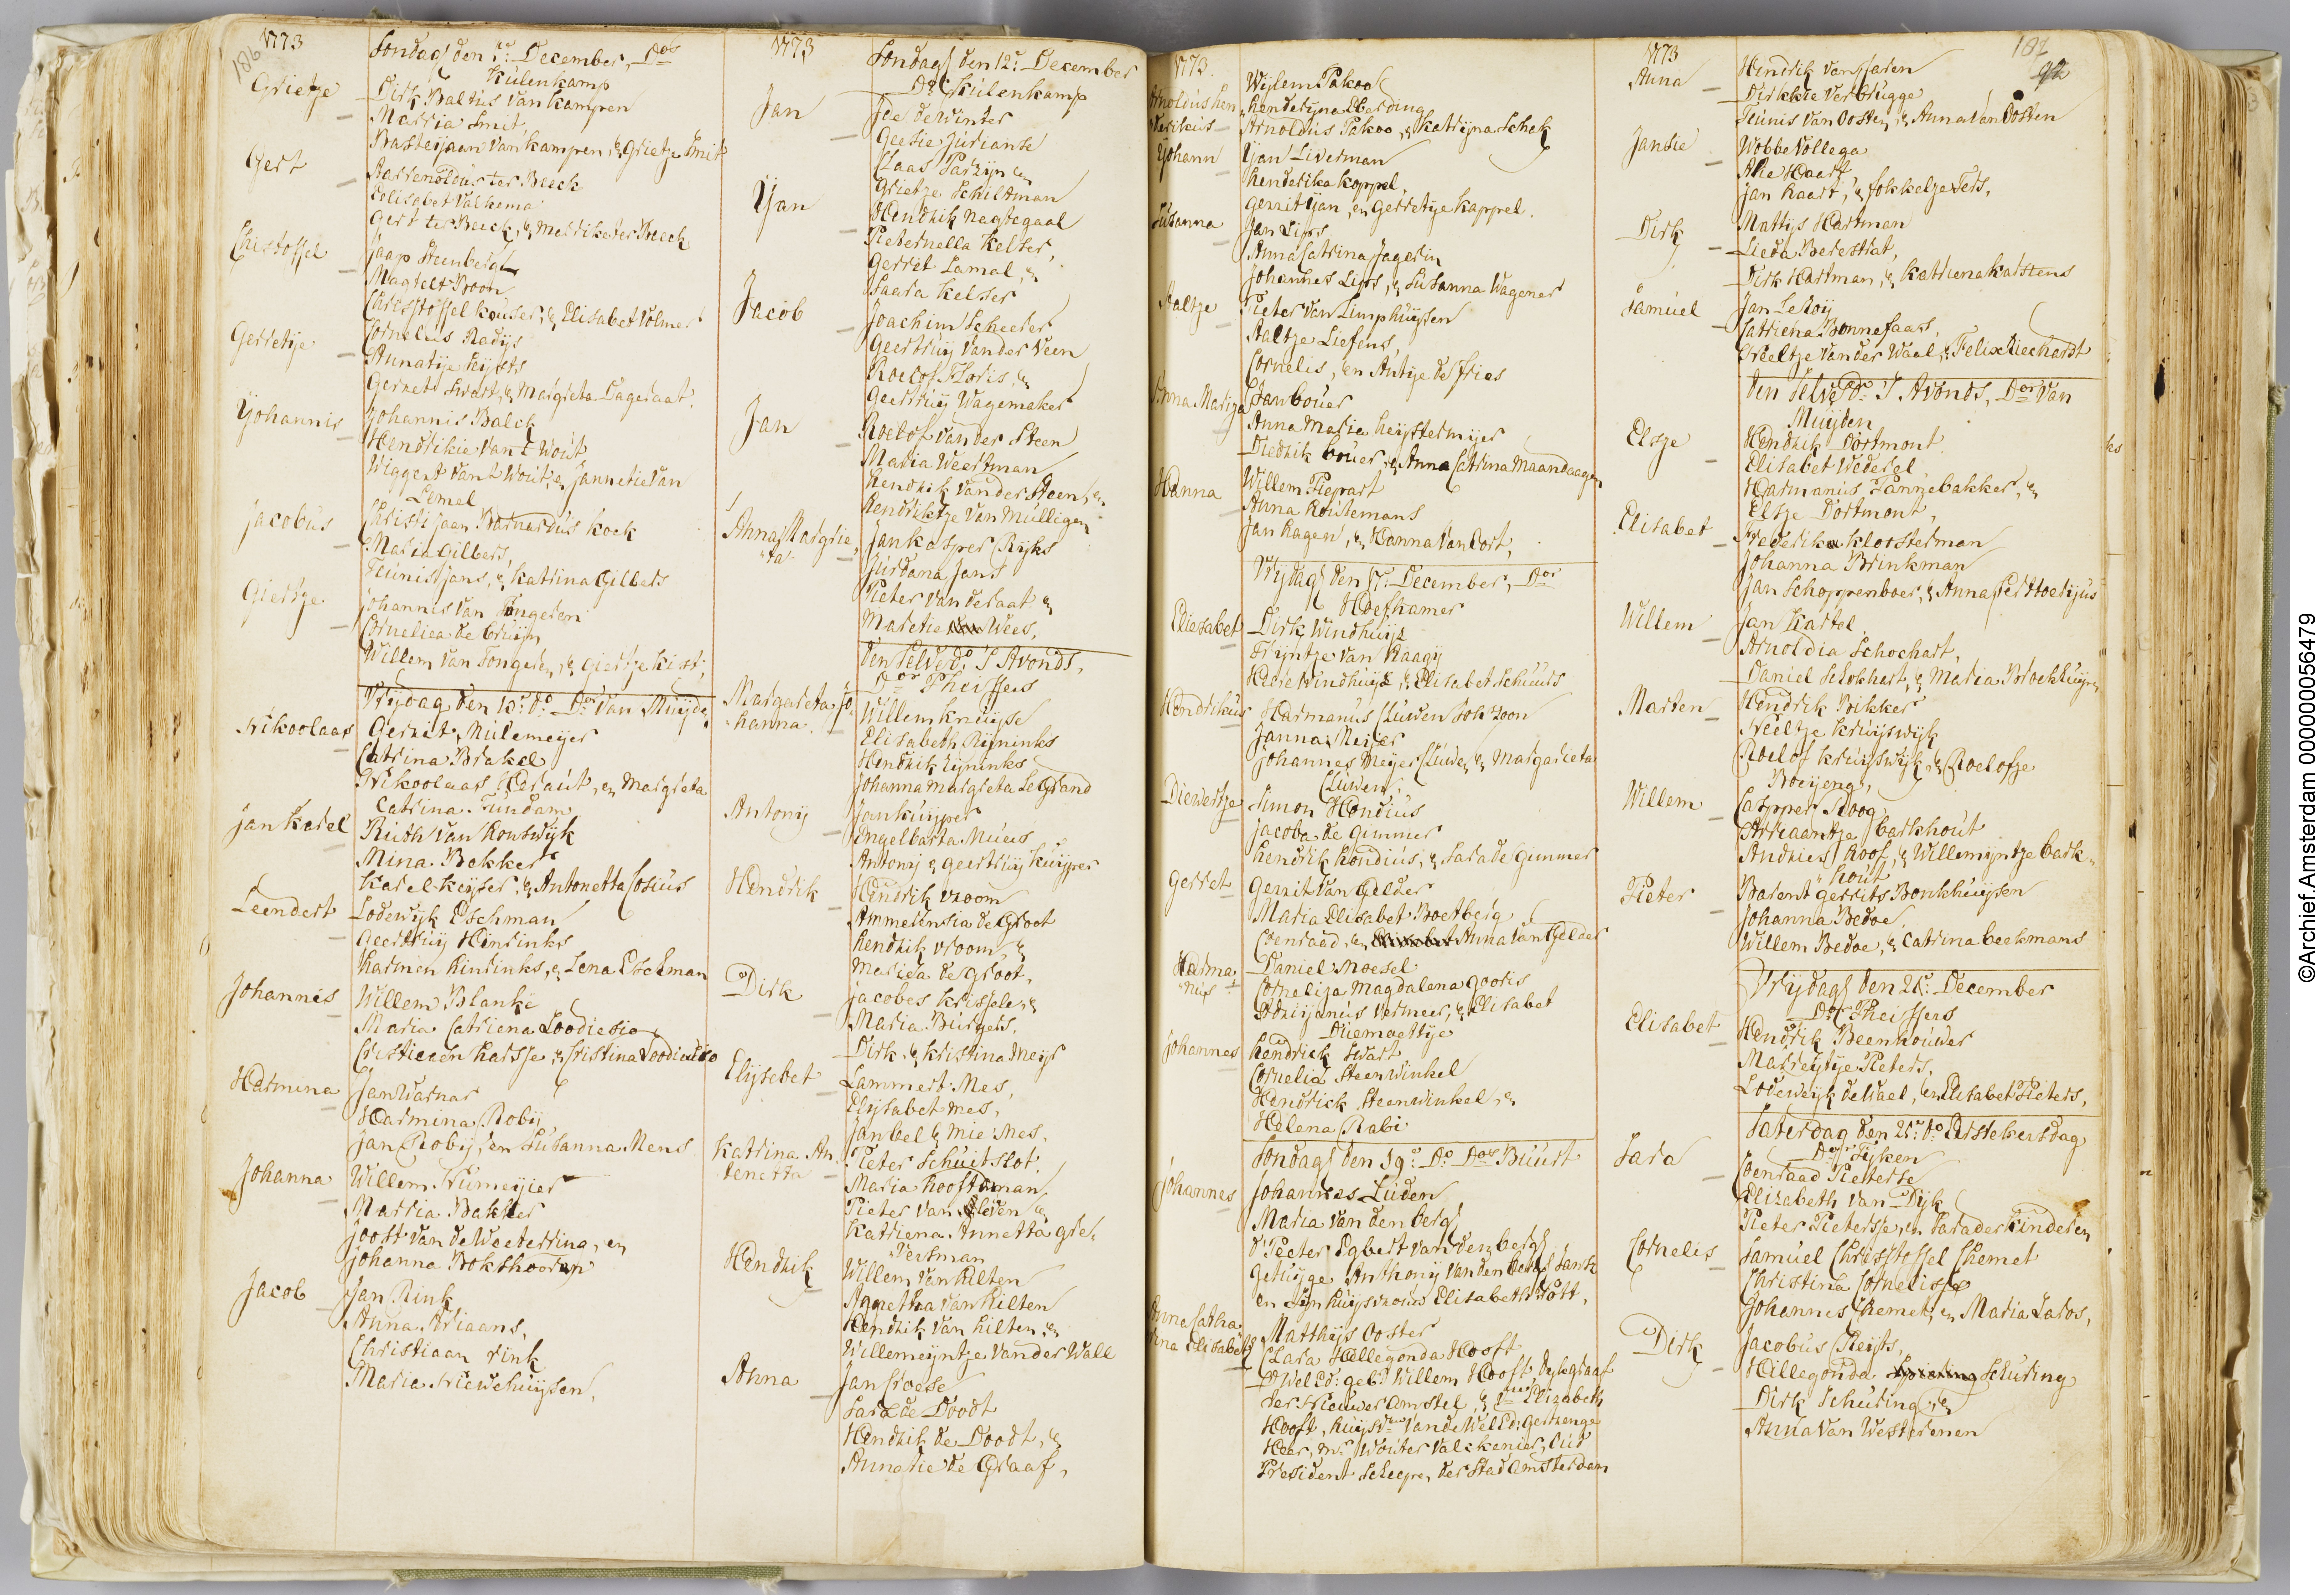 186
1773
Sondag den 5: December, Dos
Kulenkamp
Grietje
Dirk Baltus van Kampen
Marria Smit,
Basteyjaan van kampen, & Grietje Smit
Gert
Barrendtdus ter Beeck
Eelisabet Valkema
Gert ter Beeck, & Merrike ter Beeck
Christoffel
Jaap Steenbergh
Magtelt Boon
Christoffel kouser, & Elisabet Volmer
Gerretje
Cornelus Radijs
Annatije Kijsts
Gerret Swart, & Margreta Dageraat.
Yohannis
Johannis Balck
Hendrikie van t Wout
Wiggert vant Wout, en Jannetie van
Lemel
Jacobus
Christijaan Barnardus Kock
Maria Gilbers,
Teunis Jans, & Katrina Gilbers
Giertje
Johannis van Tongeren
Corneliea de bruijn
Willem van Tongeren, & Giertje kist,
Vrijdag den 10: do Dor van Muijde,
Nikoolaas
Gerrit Mulemeijer
Catrina Brakel
Nikoolaas Heraut, en Margreta
Catrina Tundam
Jan Karel
Ruth van Houtwijk
Mina Bekker
Karel Keijser, & Antonetta Cosius
Leendert
Lodewijk Eschman
Geertruij Hinrinks
Harmen Hinrinks, & Lena Eschman
Johannes
Willem Blanke
Maria Catriena Loodiesio
Cristiaen Karsse & Cristina Loodiesio
Harmina
Jan Warnar
Harmina Robij
Jan Robij, en Susanna Mens
Johanna
Willem Trumeijier
Marria Bakker
Joost van de Weeterring, en
Johanna Bokshooren
Jacob
Jan Rink
Anna Ariaans,
Christiaan rink
Maria Niewehuijsen,
1773
Sondag den 12: December
Ds Kulenkamp
Jan
Ide de Winter
Geesie Jurianse
Claas Parsijn en
Grietje Schiltman
Yjan
Hendrik Nagtegaal
Pieternella Kelser,
Gerret Lamal, &
Saara Kelser
Jacob
Joachim Scheerer
Geertruij vander Veen
Roelof Floris, &
Geertruij Wagemaker
Jan
Roelof vander Steen
Maria Weertman
Hendrik vander Steen, en
Hendriktje van Mulligen
Anna Margrie,
"ta"
Jan Kasper Rijks
Jurdana Jans
Pieter van de raat &
Maretie Wees,
Den Selve do: 'S Avonds,
Dor Theissens
Margareta Jo,
hanna.
Willem Knuijse
Elisabeth Rijninks
Hendrik Rijninks
Johanna Margreta Le Grand
Antonij
Jan Kuijper
Engelbarta Muers
Antonij & Geertruij Kuijper
Hendrik
Hendrik Vroom
Ammerensia de Groot
Hendrik Vroom, &
Mareia de Groot,
Dirk
Jacobes Krissele, &
Maria Burgers,
Dirk & Kristina Meijs
Elijsebet
Lammert Mes,
Elijsabet Mes,
Jan bel & Mie Mes,
Katrina An,
tenetta
Pieter Schuitslot,
Maria Hoofdman
Pieter van Sleven &
Katriena Annetta gre,
Hendrik
Willem van Hilten
Agnetha van Hilten
Hendrik van Hilten, &
Willemeijntje vander Wall
Anna
Jan Croese
Sara de Doodt
Hendrik de Doodt, &
Annatie de Graaf,
1773.
Arnoldus Hen
derikus
Wijlem Pakoo
Henderijna Eberding
Arnoldus Pakoo, & Katrijna Schek
Yohann
Yjan Liverman
Henderika Koppel,
Gerrit Yjan, en Gerretije Kappel.
Susanna
Jan Lips
Anna Catrina Jagerin
Johannes Lips, & Susanna Wagener
Aaltje
Pieter van Limphuijsen
Aaltje Liefens
Cornelis, en Antije de fries
Anna Marija
Jan bouer
Anna Maria Heijstermijer
Diedrik bouer, & Anna Catrina Maandaagen
Hanna
Willem Piepart
Anna Houtemans
Jan Hagen, & Hanna van Oort,
Vrijdag den 17: December, Dor
Hoefhamer
Eliesabet
Dirk Windhuijs
Trijntje van Kaagij
Heere Windhuijs, & Elisabet Schuurs
Hendrikus
Harmanus Cluwen Joh: Zoon
Janna Meijer
Johannes Meijer Cluwen & Margarieta
Cluwen,
Diewertje
Simon Hondius
Jacoba de Gimmer
Hendrik Hondius, & Sara de Gimmer
Gerret
Gerrit van Gelder
Maria Elisabet Boetberg
Coenraad, & Anna van Gelder
Harma
"nus"
Daniel Moesel
Cornelija Magdalena Gooris
Adriejanus Vermeer, & Elisabet
Diemaettije
Johannes
Hendrick Swart
Cornelia Steenwinkel
Hendrick Steenwinkel, &
Helena Rabi
Sondag den 19: Do Dos Buurt
Johannes
Johannes Luden
Maria van den berg
d'Peeter Egbert van den berg
getuijge Anthonij van den berg Jansz
en Sijn huijsvrouw Elisabeth Pott,
Anna Catha
rina Elisabeth
Matthijs Ooster
Clara Hillegonda Hooft
D'Wel Ed: geb: Willem Hooft, Dijkgraaf
der Nieuwer Amstel, & Elizabeth
Hooft, huijsv. vande Wel Ed: Gestrenge
Heer, mr. Wouter Valckenier, Oud
President Scheepen der Stad Amsterdam
187
92
1773
Anna
Hendrik van Jaren
Dirkkie Verbrugge
Teunis van Oosten, & Anna van Oosten
Jansie
Wobbe Vollega
Alie Haart
Jan Haart, & Fokkeltje Ters,
Dirk
Mattijs Hartman
Lieda Berestrat,
Dirk Hartman, & Katriena Karstens
Samuel
Jan Le Roij
Catriena Bonnefaars,
Neeltje van der Waal, & Felix Riechardt
Den Selve Do: 'S Avonds, Dor van
Muijden
Elsje
Hendrik Dortmont
Elisabet Wederel
Harmanus Pannebakker, &
Elsje Dortmont,
Elisabet
Frederik Kloosterman
Johanna Brinkman
Jan Schoppenboer, & Anna Certhoetijus
Willem
Jan Kastel
Arnoldia Schochart,
Daniel Schokhart, & Maria Broekhuijse,
Marten
Hendrik Rikker
Neeltje Kruijswijk
Roelof Kruijswijk, & Roelofje
Boeijeng,
Willem
Casper Roog
Arriaantje barkhout
Andries Roof, & Willemijntje bark,
"hout
Pieter
Barent Gerrits Bonkhuijsen
Johanna Bedoe
Willem Bedoe, & Catrina beekmans
Vrijdag den 24: December
Dor Theissens
Elisabet
Hendrik Beenhouwer
Marreijtje Pieters,
Lodewijk de Wael, en Elisabet Pieters,
Saterdag den 25: do Eerste kersdag
Dor Tijken
Sara
Coenraad Pieterse
Elizabeth van Dijk
Pieter Pietersse, en Sara der Kinderen
Cornelis
Samuel Christoffel Chemet
Christina Cornelisse
Johannes Chemet, en Maria Jabos,
Dirk
Jacobus Reijts,
Hillegonda Schuring
Dirk Schuring, &
Anna van Westrenen
©Archief.Amsterdam 000000056479